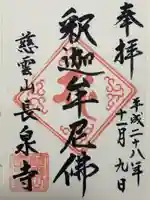 奉拝
平成二十八年
十一月九日
釋迦牟尼佛
慈雲山長泉寺